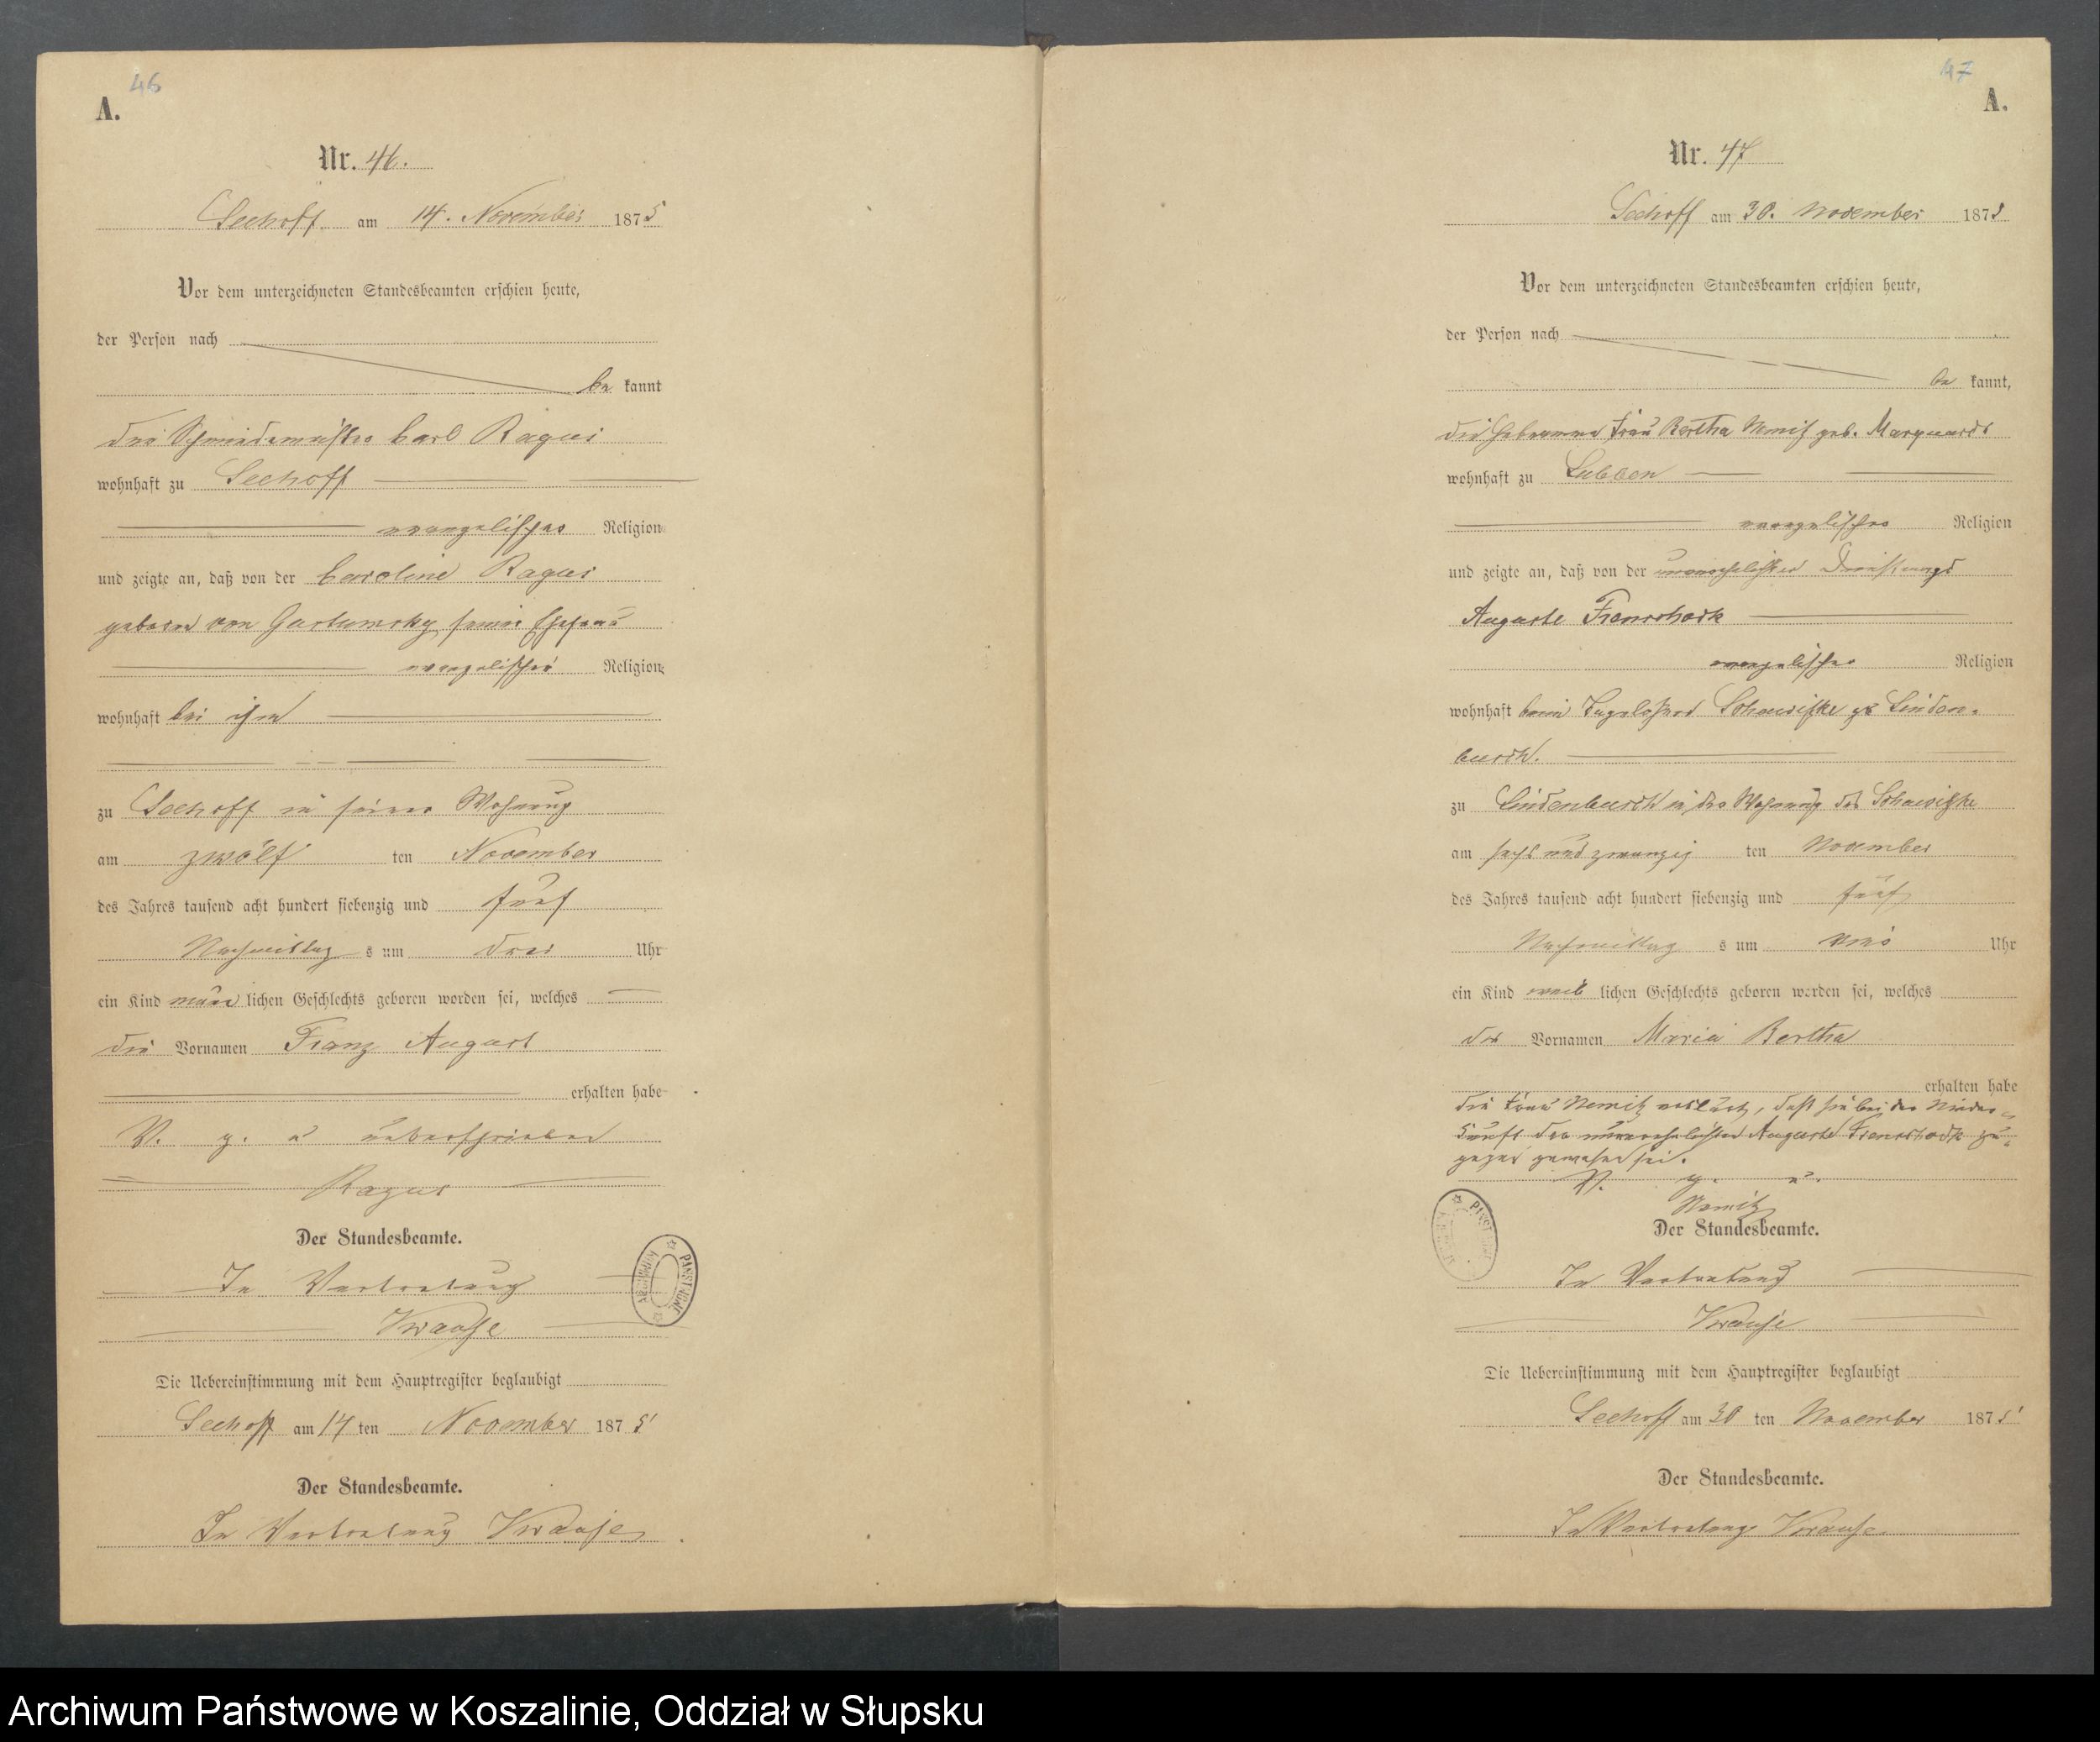 46
A.
Nr. 46.
Seehoff am 14. November 1875
Vor dem unterzeichneten Standesbeamten erschien heute,
der Person nach
be kannt
der Schmiedemeister Carl Ragus
wohnhaft zu Seehoff
evangelischer Religion
und zeigte an, daß von der Caroline Ragus
geboren von seiner Ehefrau
evangelischer Religion
wohnhaft bei ihm
zu Seehoff in seiner Wohnung
am zwölf ten November
des Jahres tausend acht hundert siebenzig und fünf
Nachmittag s um drei Uhr
ein Kind männ lichen Geschlechts geboren worden sei, welches
die Vornamen Franz August
erhalten habe
V. g. u unterschrieben
Ragus
Der Standesbeamte.
In Vertretung
Krause
Die Uebereinstimmung mit dem Hauptregister beglaubigt
Seehoff am 14 ten November 1875
Der Standesbeamte.
In Vertretung Krause
ARCHIWUM PAŃSTWOWE
47
A.
Nr. 47
Seehoff am 30. November 1875
Vor dem unterzeichneten Standesbeamten erschien heute,
der Person nach
be kannt,
die Hebamme Frau Bertha Nemitz geb. Marquardt
wohnhaft zu Lubben
evangelischer Religion
und zeigte an, daß von der unverehelichten Dienstmagd
Auguste
evangelischer Religion
wohnhaft beim zu Linden-
busch.
zu Lindenbusch in der Wohnung des
am sechs und zwanzig ten November
des Jahres tausend acht hundert siebenzig und fünf
Nachmittag s um Uhr
ein Kind weib lichen Geschlechts geboren worden sei, welches
die Vornamen Maria Bertha
erhalten habe
die Frau Nemitz erklärt, daß sie bei der Nieder-
kunft der unverehelichten Auguste zu-
gegen gewesen sei.
V. g. u.
Nemitz
Der Standesbeamte.
In Vertretung
Krause
Die Uebereinstimmung mit dem Hauptregister beglaubigt
Seehoff am 30 ten November 1875
Der Standesbeamte.
In Vertretung Krause
Archiwum Państwowe w Koszalinie, Oddział w Słupsku